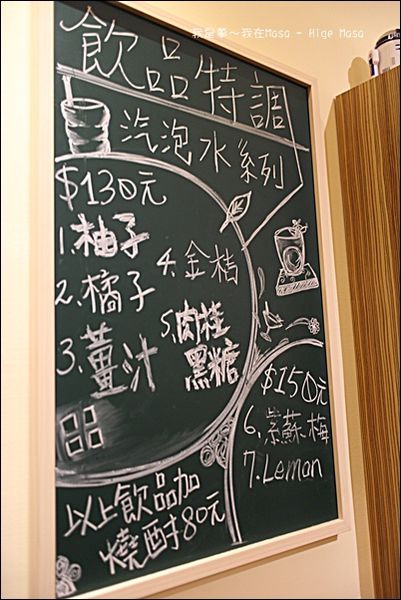 我是薯～我在Masa - Hige Masa
飲品特調
汽泡水系列
$130元
1.柚子
2.橘子
3.薑汁
4.金桔
5.肉桂
黑糖
$150元
6.紫蘇梅
7.Lemon
以上飲品加
燒酎80元